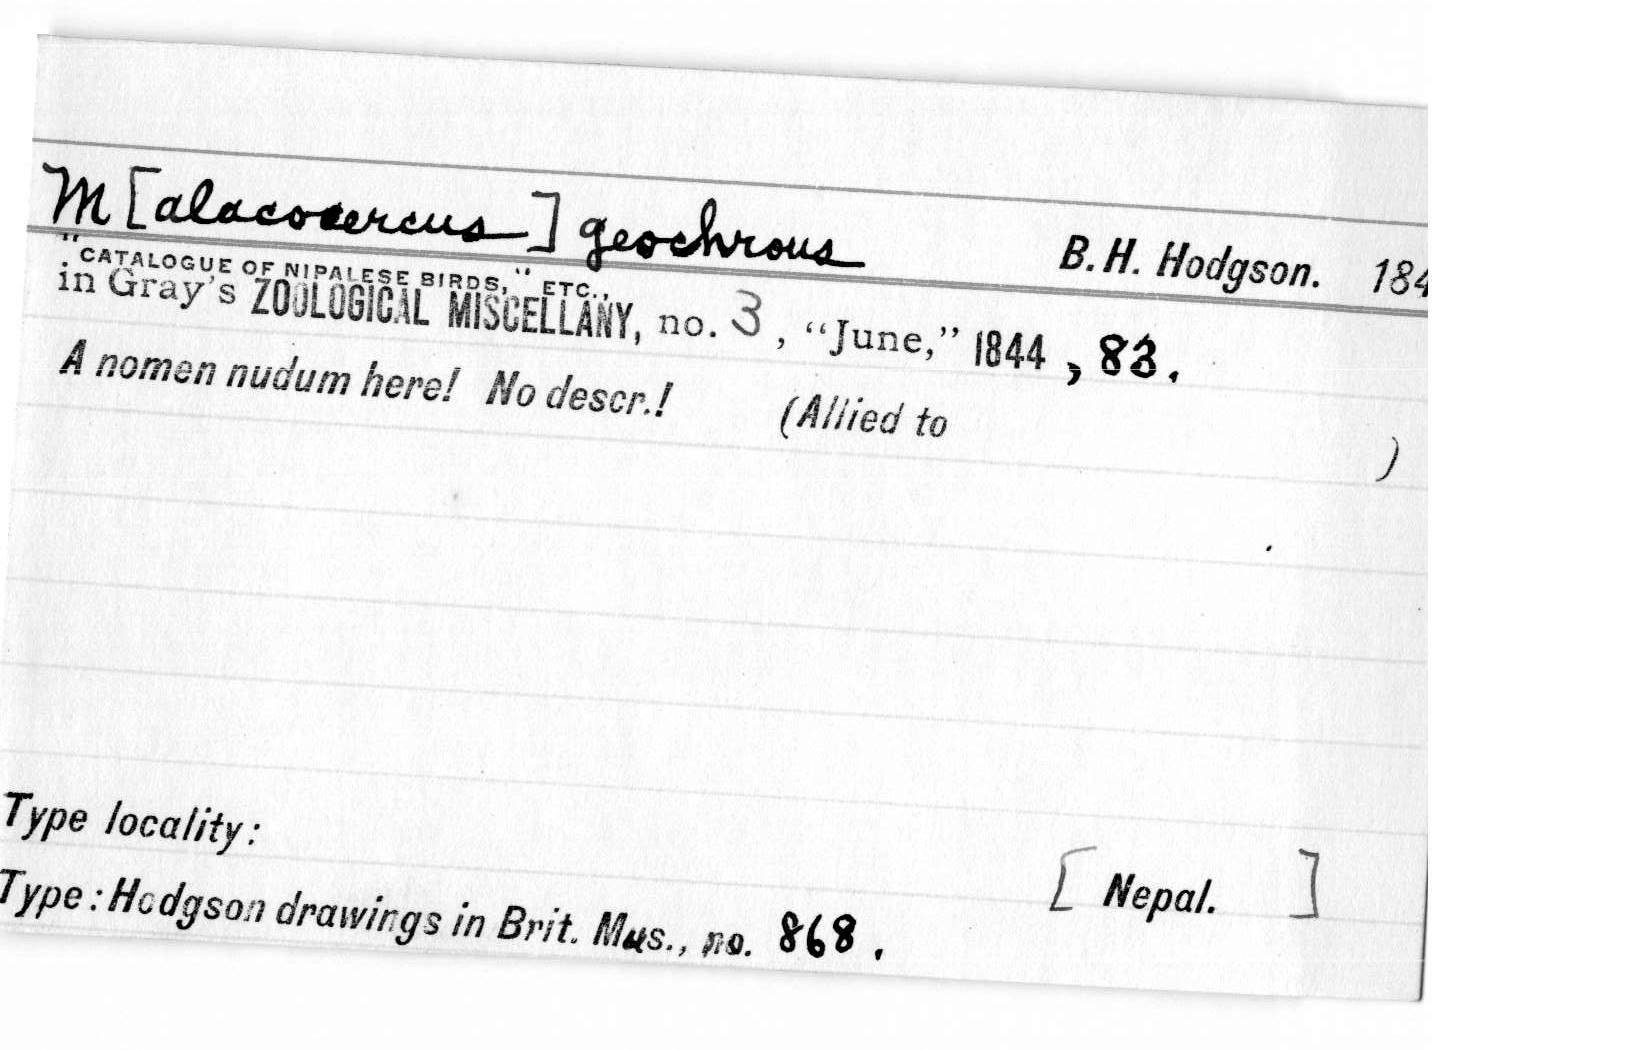 M[alacocercus] geochrous B. H. Hodgson. 184
"CATALOGUE OF NIPALESE BIRDS," ETC.,
in Gray's ZOOLOGICAL MISCELLANY, no. 3, "June," 1844, 83.
A nomen nudum here! No descr.! (Allied to )
Type locality: [Nepal. ]
Type: Hodgson drawings in Brit. Mus., no. 868.